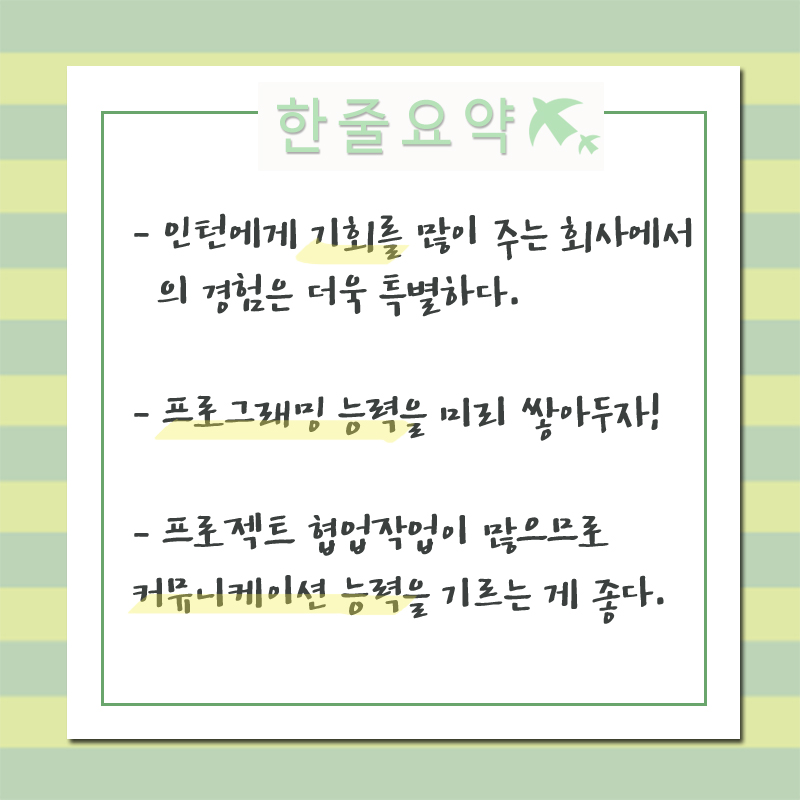 한줄요약
- 인턴에게 기회를 많이 주는 회사에서
의 경험은 더욱 특별하다.
- 프로그래밍 능력을 미리 쌓아두자!
- 프로젝트 협업작업이 많으므로
커뮤니케이션 능력을 기르는 게 좋다.